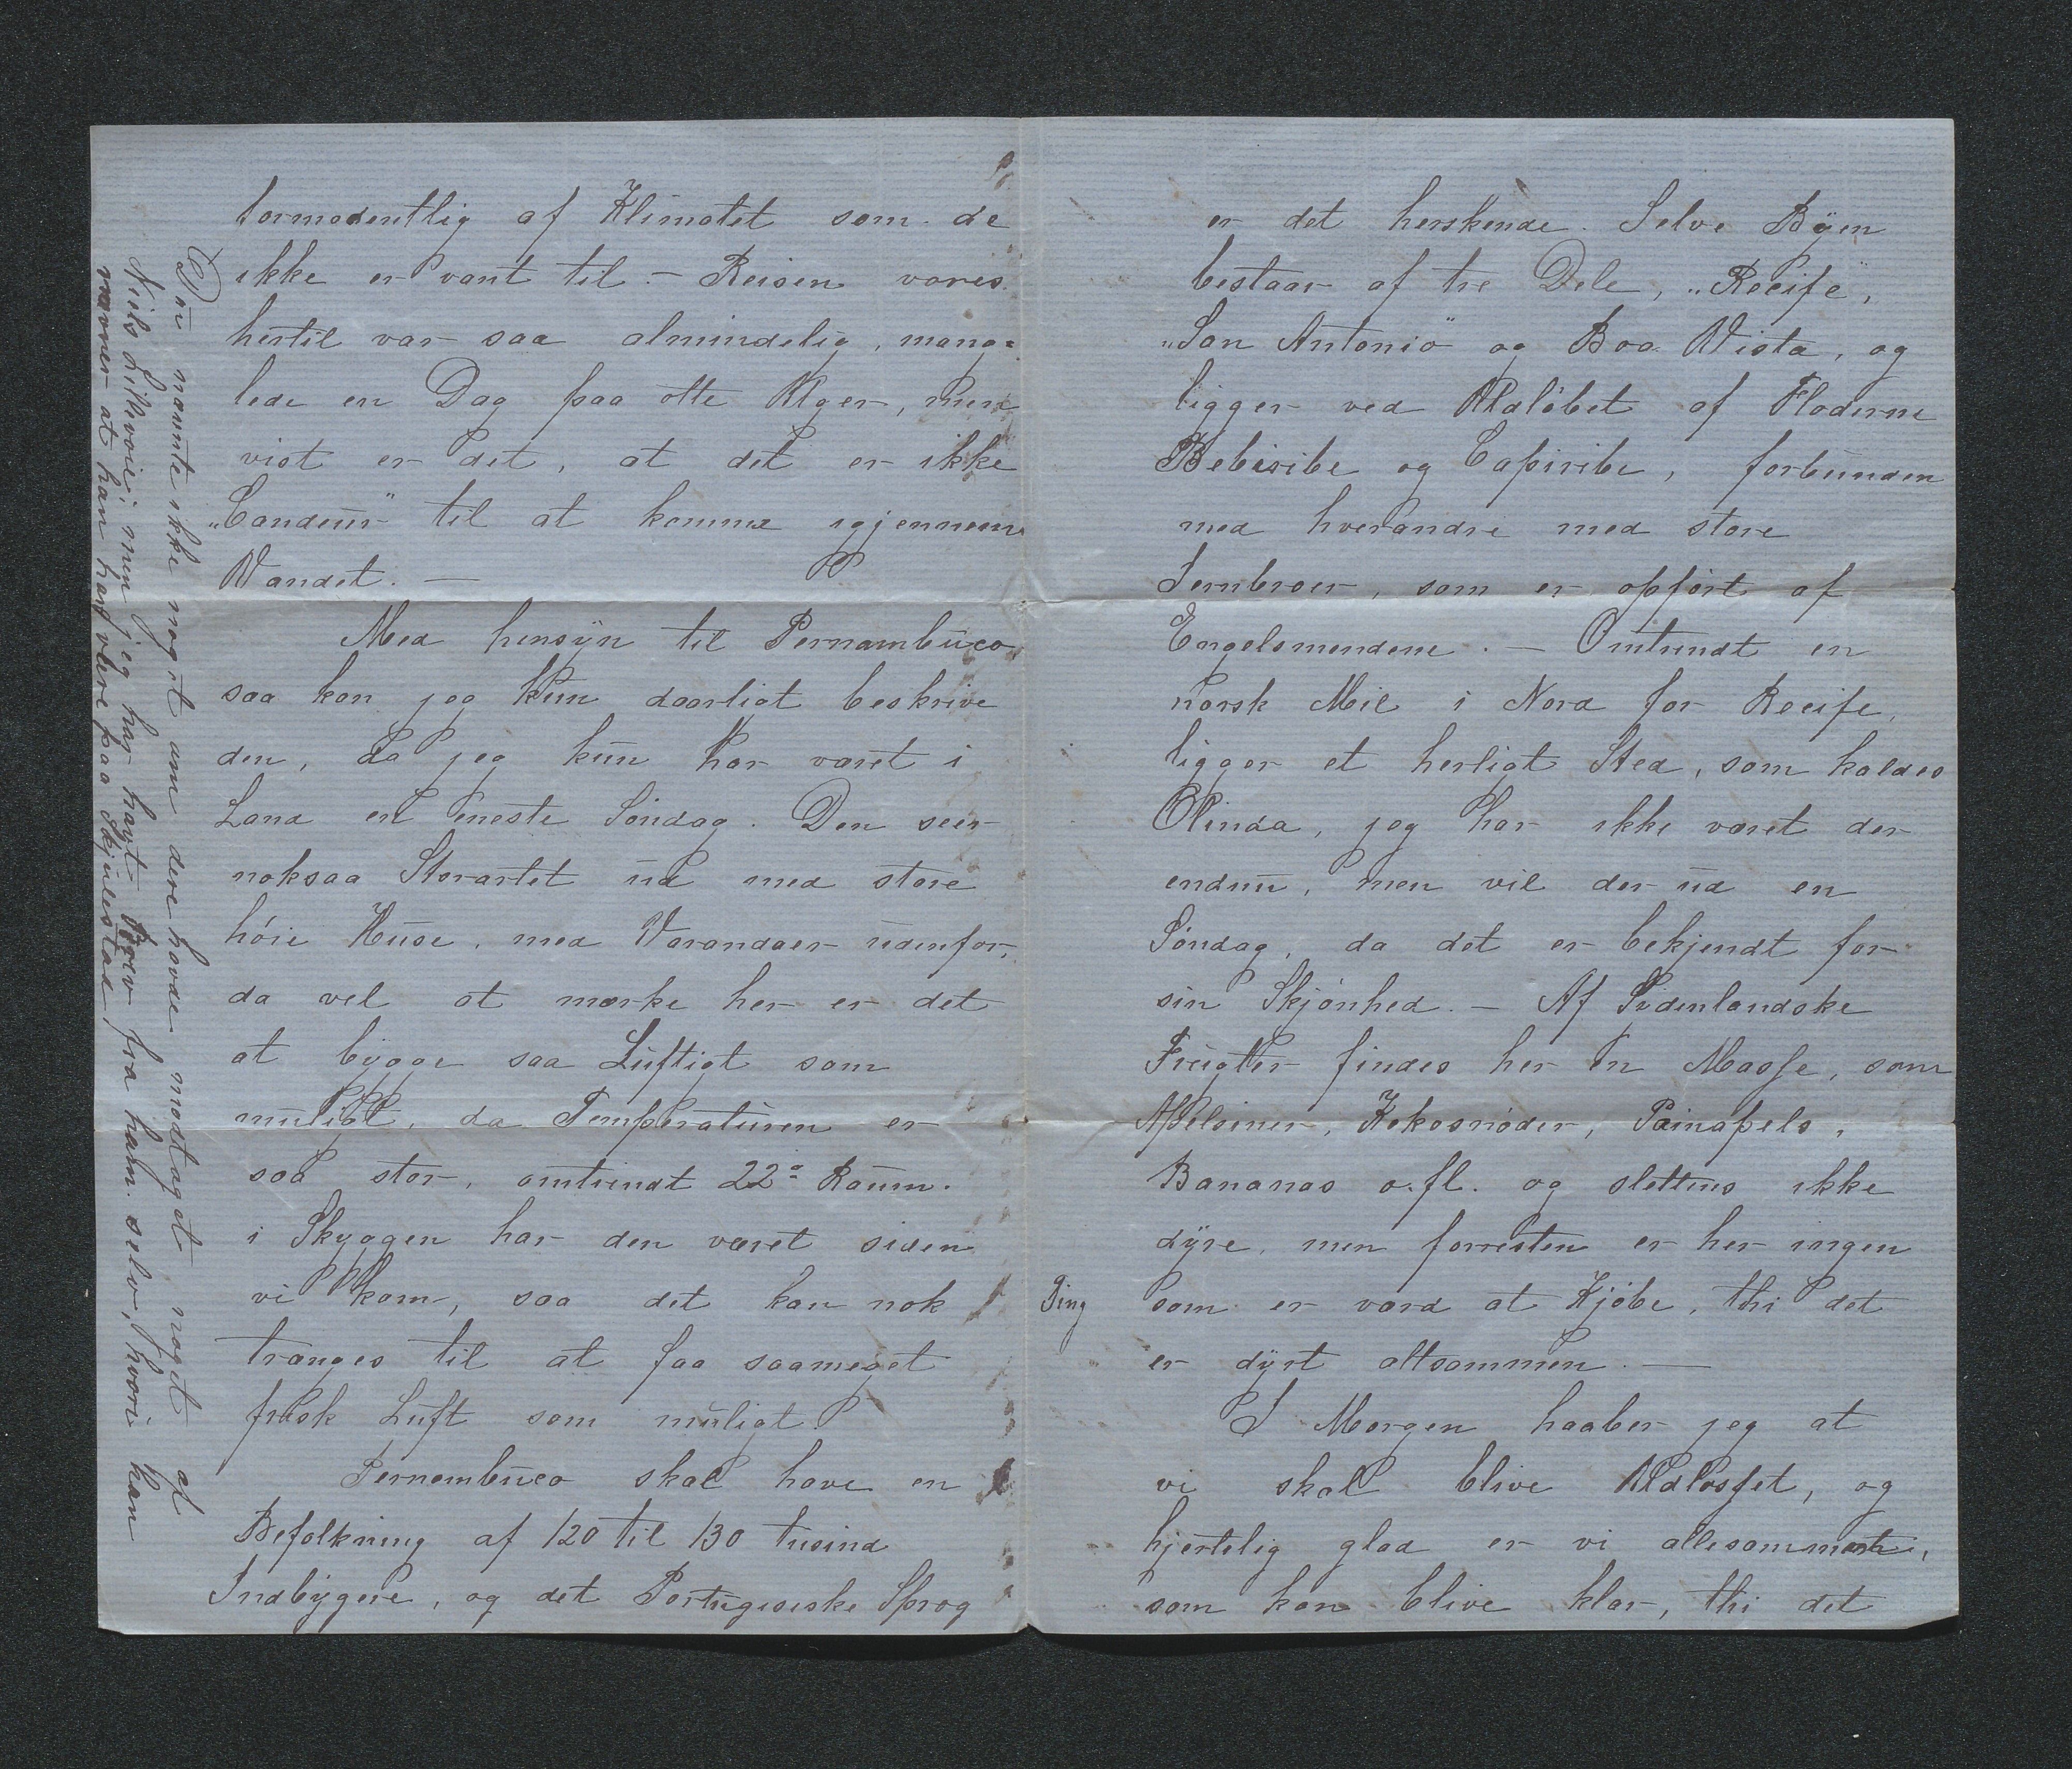 formodentlig af Klimatet som de
ikke er vant til. — Reisen vores
hertil var saa almindelig, mang=
lede en Dag paa otte Uger, men
vist er det, at det er ikke
"Condeur" til at komme igjennem
Vandet. —
Med hensÿn til Pernambuco,
saa kan jeg kun daarligt beskrive
den, da jeg kun har været i
Land en eneste Søndag. Den seer
noksaa Storartet ud med store
høie Huse, med Varandaer udenfor,
da vel at mærke her er det
at bÿgge saa Luftigt som
muligt, da Temperaturen er
saa stor, omtrendt 22° Raum.
i Skyggen har den været siden
vi kom, saa det kan nok
trænges til at faa saameget
frisk Luft som muligt.
Pernambuco skal have en
Befolkning af 120 til 130 tusind
Indbÿgere, og det Portugisiske Sprog
Du nævnte ikke noget om dere havde modtaget noget af
Niels Littvoie; men jeg har havt Brev fra ham selv, hvori han
nævner at han har være paa Skjulestad,
er det herskende. Selve Bÿen
bestaar af tre Dele, "Recife",
"San Antonio" og Boa Vista, og
ligger ved Udløbet af Floderne
Bebiribe og Capiribe, forbunden
med hverandre med store
Jernbroer, som er opført af
Engelsmendene. — Omtrendt en
norsk Mil i Nord for Recife,
ligger et herligt Sted, som kaldes
Olinda, jeg har ikke været der
endnu, men vil der ud en
Søndag, da det er bekjendt for
sin Skjønhed. — Af Sydenlandske
Frugter findes her en Masse, som
Apelsiner, Kokosnøder, Painapels,
Bananas o.fl. og slettens ikke
dÿre, men forresten er her ingen
Ting som er værd at Kjøbe, thi det
er dÿrt altsammen. —
I Morgen haaber jeg at
vi skal blive Udlosset, og
hjertelig glad er vi allesammen,
som kan blive klar, thi det